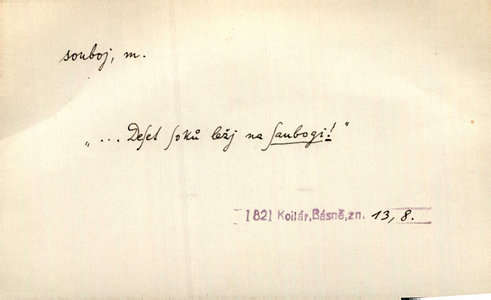 souboj, m.
„... Deſet ſoků ležj na ſaubogi!"
1821 Kollár, Básně, zn. 13, 8.